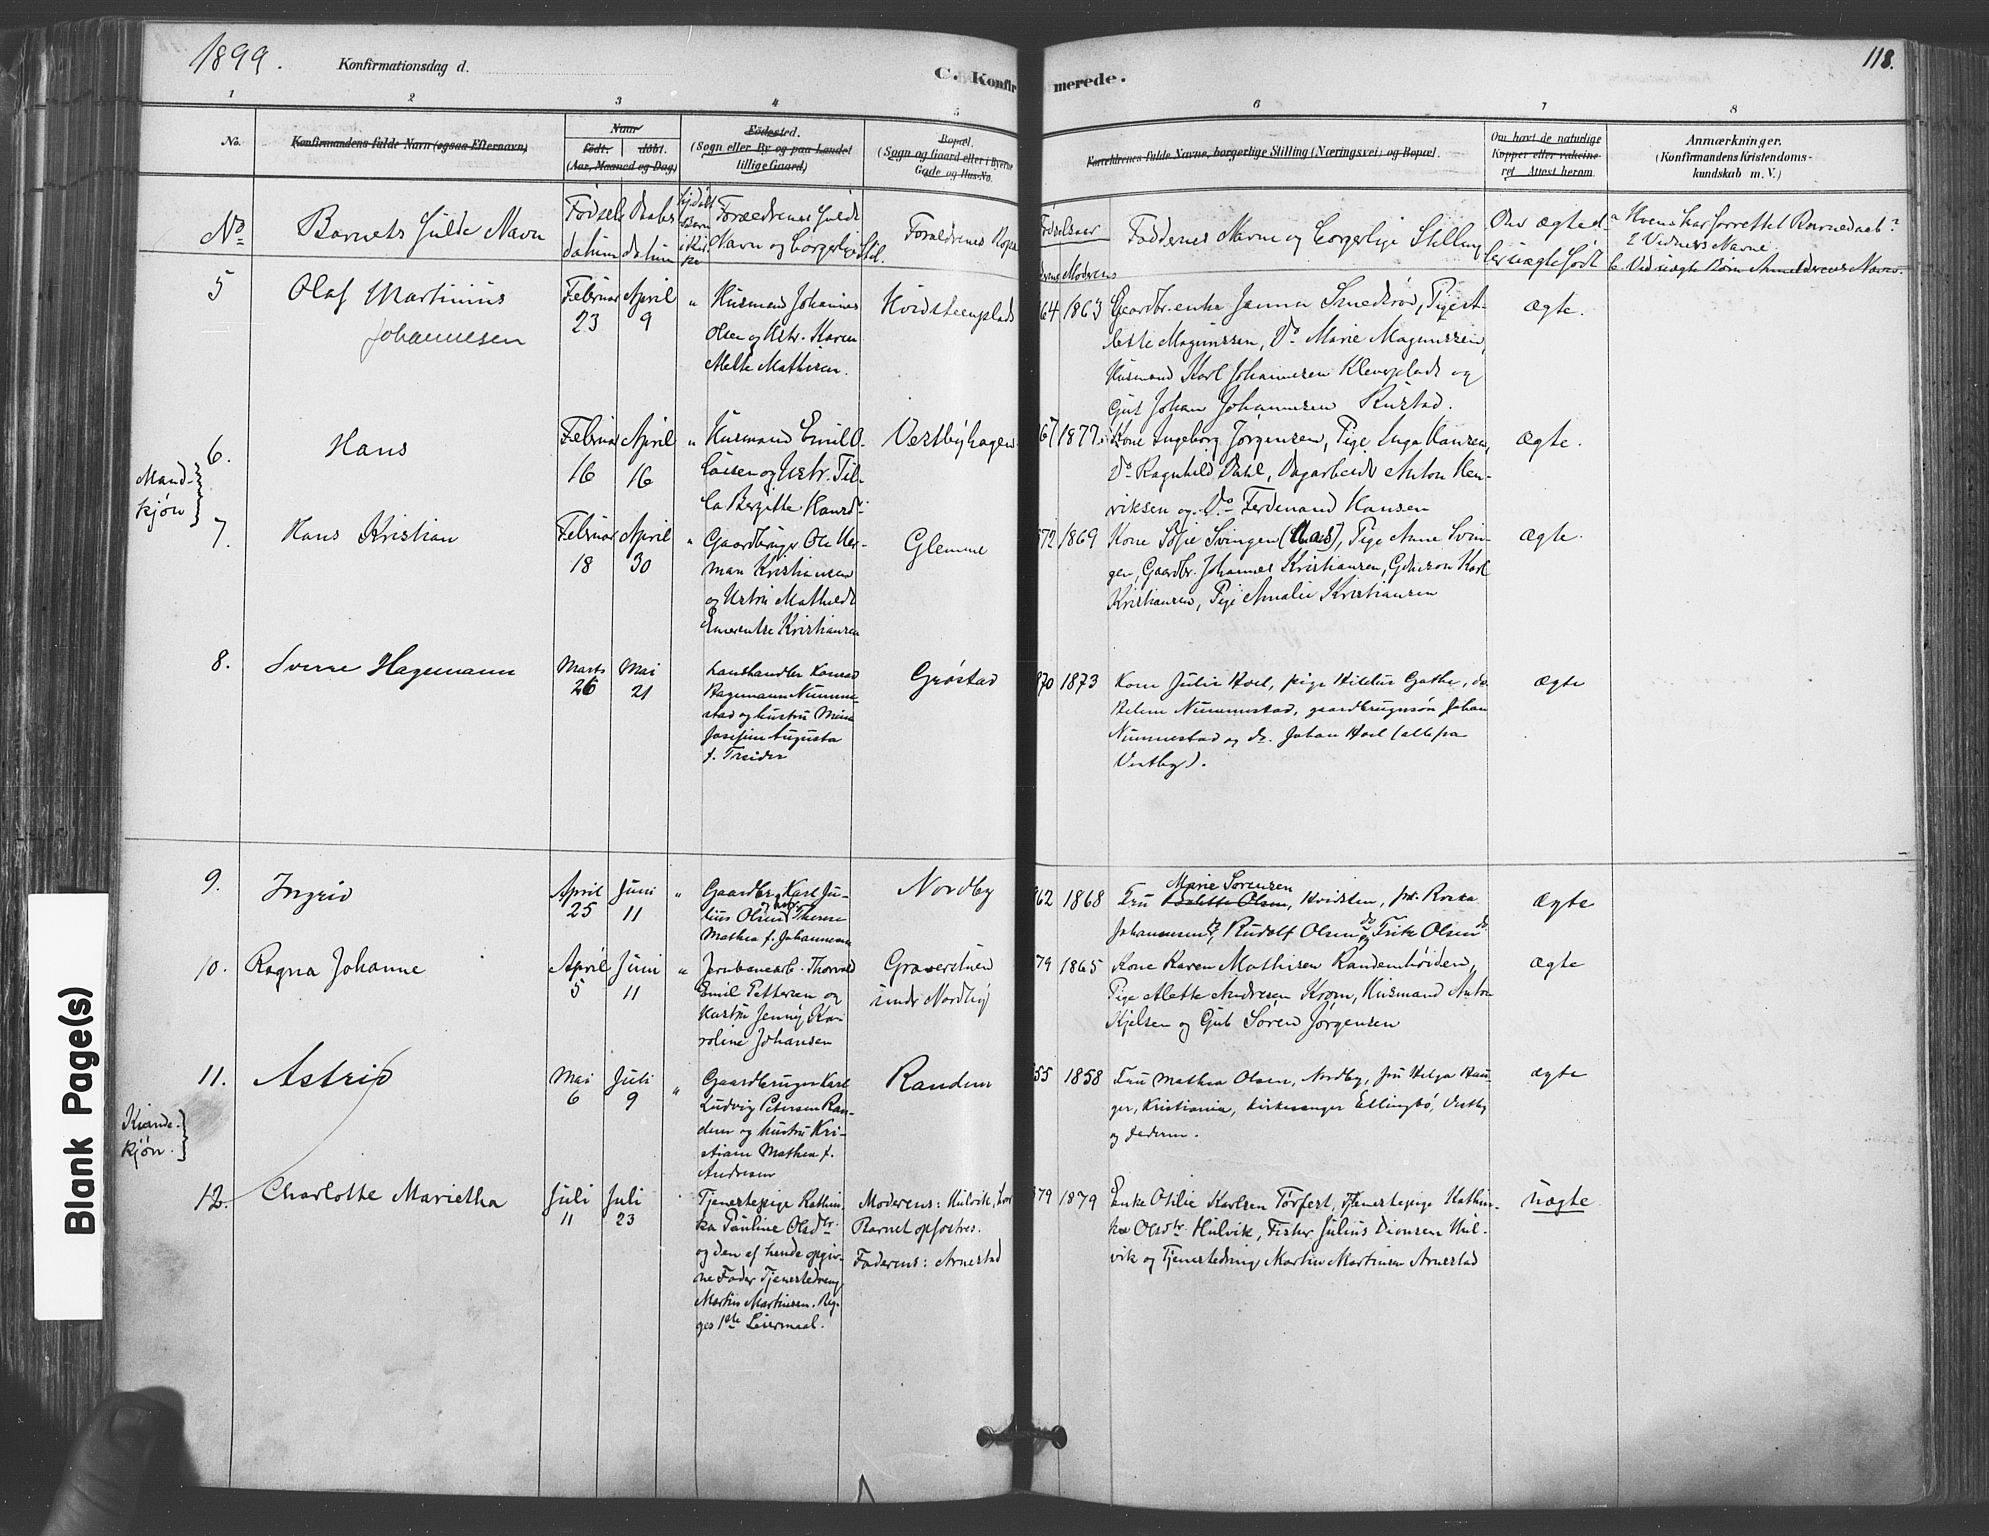 1899.
Konfirmationsdag d.
C. Konfirmerede.
118.
1 2 3 4 5 6 7 8
No.
Konfirmandens fulde Navn (ogsaa Efternavn)
Naar
født. døbt.
(Aar, Maaned og Dag)
Fødested.
(Sogn eller By og paa Landet
tillige Gaard)
Bopæl.
(Sogn og Gaard eller i Byerne
Gade og Hus-No.
Forældrenes fulde Navne, borgerlige Stilling (Næringsvei) og Bopæl.
Om havt de naturlige
Kopper eller vakcine-
ret. Attest herom.
Anmærkninger.
(Konfirmandens Kristendoms-
kundskab m. V.)
No
Barnets fulde Navn
Fødsels
datum
Daabs
datum
Forældrenes fulde
Navn og borgerlige Stil.
Forældrenes Bopæ
Fødselsaar
Moderens
Faddernes Navne og borgerlige Stilling
Om ægte el-
ler uægte født
a Hvem har forrettet Barnedaab?
2 Vidners Navne
b. Ved uægte Børn Anmelderens Navn.
5
Olaf Martinius
Johannesen
Februar
23
April
9
"
Husmand Johannes
Olsen og Hstr. Karen
Mette Mathisen.
Hvidsteenplads
64 1863
Gaardbr.enke Janna Smedsrød, Pige
lette Magnussen, Do Marie Magnussen,
Husmand Karl Johannesen Kleverplads og
Gut Johan Johannesen Rustad.
ægte.
Mand-
kjøn
6.
Hans
Februar
16
April
16
"
Husmand Emil O.
og Ustr. Til-
la Bergitte Hansd.
Vestbyhagen
67 1877.
Kone Ingeborg Jørgensen, Pige Inga Hansen,
Do Ragnhild Dahl, Dagarbeider Anton Hen-
riksen og Do Ferdinand Hansen
ægte.
7.
Hans Kristian
Februar
18
April
30
"
Gaardbruger Ole Her-
man Kristiansen
og Ustru Mathilde
Emerentse Kristiansen
Glemme
72 1869
Kone Sofie Svingen (Aas), Pige Anne Svin-
gen, Gaardbr. Johannes Kristiansen, Gdmssøn Karl
Kristiansen, Pige Amalie Kristiansen
ægte.
8.
Sverre Hagemann
Marts
26
Mai
21
Landhandler Konrad
Hagemann Nunne-
stad og hustru Mina
Josefine Augusta
f. Treider
Grøstad
870 1873
Kone Julie Hoel, pige Hildur Gothe, do
Helene Nunnestad, gaardbrugersøn Johan
Nunnestad og do. Johan Hoel (alle fra
Vestby).
ægte
9.
Ingrid
April
25
Juni
11
"
Gaardbr. Karl Ju-
lius Olsen og hust. Therese
Mathea f. Johannesen
Nordby
862 1868
Marie Sørensen
Fru Olsen, Hvidsten, frk. Rosa
Johannesen do, Rudolf Olsen do og Frits Olsen do
ægte
10.
Ragna Johanne
April
5
Juni
11
"
Jernbanearb. Thorvald
Emil Pettersen og
Hustru Jenny Ka-
roline Johansen
under Nordby
79 1865
Kone Karen Mathisen Randemhøiden,
Pige Alette Andresen Krom, Husmand Anton
Kjelsen og Gut Søren Jørgensen
ægte
11.
Astrid
Mai
6
Juli
9
"
Gaardbruger Karl
Ludvig Petersen Ran-
dem og hustru Kri-
stiane Mathea f.
Andresen
Randem
855 1858
Fru Mathea Olsen, Nordby, fru Helga Hau-
ger, Kristiania, kirkesanger Ellingbø, Vestby
og faderen.
ægte
Kvinde-
kjøn.
12.
Charlotte Marietha
Juli
11
Juli
23
Tjenestepige Kathin-
ka Pauline Olsdtr.
og den af hende opgiv-
ne Fader Tjenestedreng
Martin Martinsen. Beg-
ges 1ste Leiermaal.
Moderens: Hulvik, hvor
Barnet opfostres.
Faderens: Arnestad
879 1879
Enke Otilie Karlsen Torfest, Tjenestepige Kathin-
ka Olsdtr. Hulvik, Fisker Julius Dionsen Hul-
vik og Tjenestedreng Martin Martinsen Arnestad
uægte
Blank Page(s)